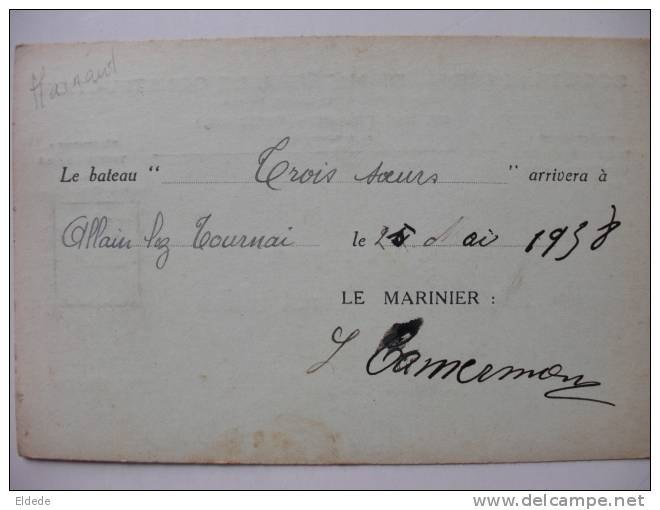 Hainaut
Le bateau " Trois sœurs " arrivera à
Allain lez Tournai le 25 Mai 1938
LE MARINIER :
Eldede
delcampe.net